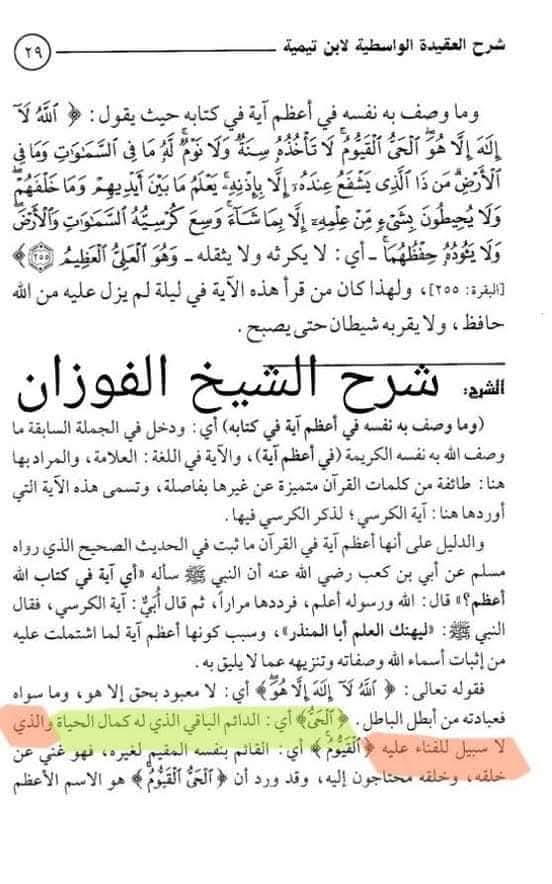 شرح العقيدة الواسطية لابن تيمية
٢٩
وما وصف به نفسه في أعظم آية في كتابه حيث يقول: ﴿ ٱللَّهُ لَآ
إِلَٰهَ إِلَّا هُوَ ٱلۡحَيُّ ٱلۡقَيُّومُۚ لَا تَأۡخُذُهُۥ سِنَةٞ وَلَا نَوۡمٞۚ لَّهُۥ مَا فِي ٱلسَّمَٰوَٰتِ وَمَا فِي
ٱلۡأَرۡضِۗ مَن ذَا ٱلَّذِي يَشۡفَعُ عِندَهُۥٓ إِلَّا بِإِذۡنِهِۦۚ يَعۡلَمُ مَا بَيۡنَ أَيۡدِيهِمۡ وَمَا خَلۡفَهُمۡۖ
وَلَا يُحِيطُونَ بِشَيۡءٖ مِّنۡ عِلۡمِهِۦٓ إِلَّا بِمَا شَآءَۚ وَسِعَ كُرۡسِيُّهُ ٱلسَّمَٰوَٰتِ وَٱلۡأَرۡضَۖ
وَلَا يَـُٔودُهُۥ حِفۡظُهُمَاۚ ـ أي: لا يكرثه ولا يثقله ـ وَهُوَ ٱلۡعَلِيُّ ٱلۡعَظِيمُ ۝٢٥٥ ﴾
[البقرة: ٢٥٥]، ولهذا كان من قرأ هذه الآية في ليلة لم يزل عليه من الله
حافظ، ولا يقربه شيطان حتى يصبح.
الشرح: شرح الشيخ الفوزان
(وما وصف به نفسه في أعظم آية في كتابه) أي: ودخل في الجملة السابقة ما
وصف الله به نفسه الكريمة (في أعظم آية)، والآية في اللغة: العلامة، والمراد بها
هنا: طائفة من كلمات القرآن متميزة عن غيرها بفاصلة، وتسمى هذه الآية التي
أوردها هنا: آية الكرسي؛ لذكر الكرسي فيها.
والدليل على أنها أعظم آية في القرآن ما ثبت في الحديث الصحيح الذي رواه
مسلم عن أبي بن كعب رضي الله عنه أن النبي ﷺ سأله «أي آية في كتاب الله
أعظم؟» قال: الله ورسوله أعلم، فرددها مراراً، ثم قال أُبيٌّ: آية الكرسي، فقال
النبي ﷺ: «ليهنك العلم أبا المنذر»، وسبب كونها أعظم آية لما اشتملت عليه
من إثبات أسماء الله وصفاته وتنزيهه عما لا يليق به.
فقوله تعالى: ﴿ ٱللَّهُ لَآ إِلَٰهَ إِلَّا هُوَ ﴾ أي: لا معبود بحق إلا هو، وما سواه
فعبادته من أبطل الباطل. ﴿ ٱلۡحَيُّ ﴾ أي: الدائم الباقي الذي له كمال الحياة والذي
لا سبيل للفناء عليه ﴿ ٱلۡقَيُّومُۚ ﴾ أي: القائم بنفسه المقيم لغيره، فهو غني عن
خلقه، وخلقه محتاجون إليه، وقد ورد أن ﴿ ٱلۡحَيُّ ٱلۡقَيُّومُ ﴾ هو الاسم الأعظم